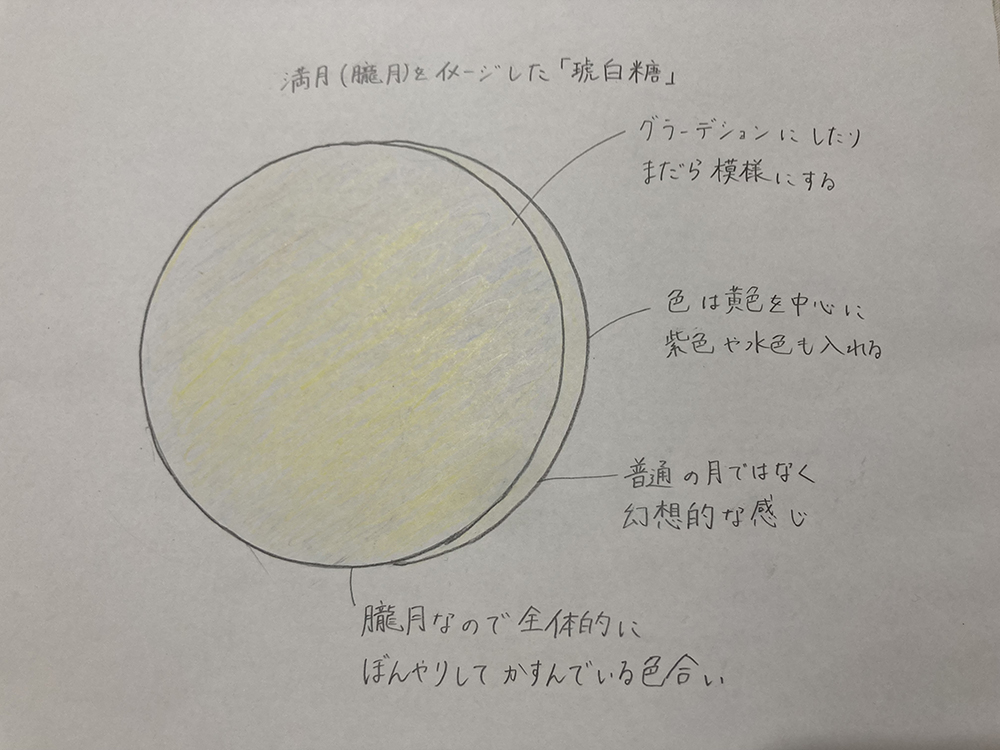 満月(朧月)をイメージした「琥白糖」
グラーデションにしたり
まだら模様にする
色は黄色を中心に
紫色や水色も入れる
普通の月ではなく
幻想的な感じ
朧月なので全体的に
ぼんやりしてかすんでいる色合い